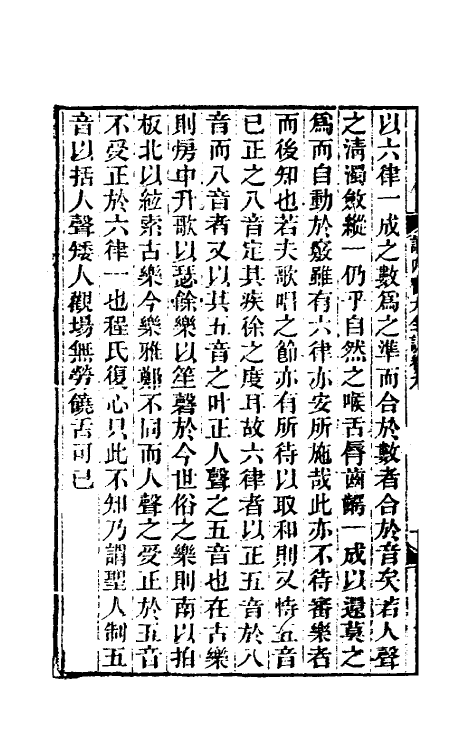 以六律一成之數爲之準而合於數者合於音矣若人聲
之淸濁斂縱一仍乎自然之喉舌脣齒齶一成以還莫之
爲而自動於竅雖有六律亦安所施哉此亦不待審樂者
而後知也若夫歌唱之節亦有所待以取和則又恃五音
已正之八音定其疾徐之度耳故六律者以正五音於八
音而八音者又以其五音之叶正人聲之五音也在古樂
則房中升歌以瑟餘樂以笙磬於今世俗之樂則南以拍
板北以絃索古樂今樂雅鄭不同而人聲之受正於五音
不受正於六律一也程氏復心只此不知乃謂聖人制五
音以括人聲矮人觀場無勞饒舌可已